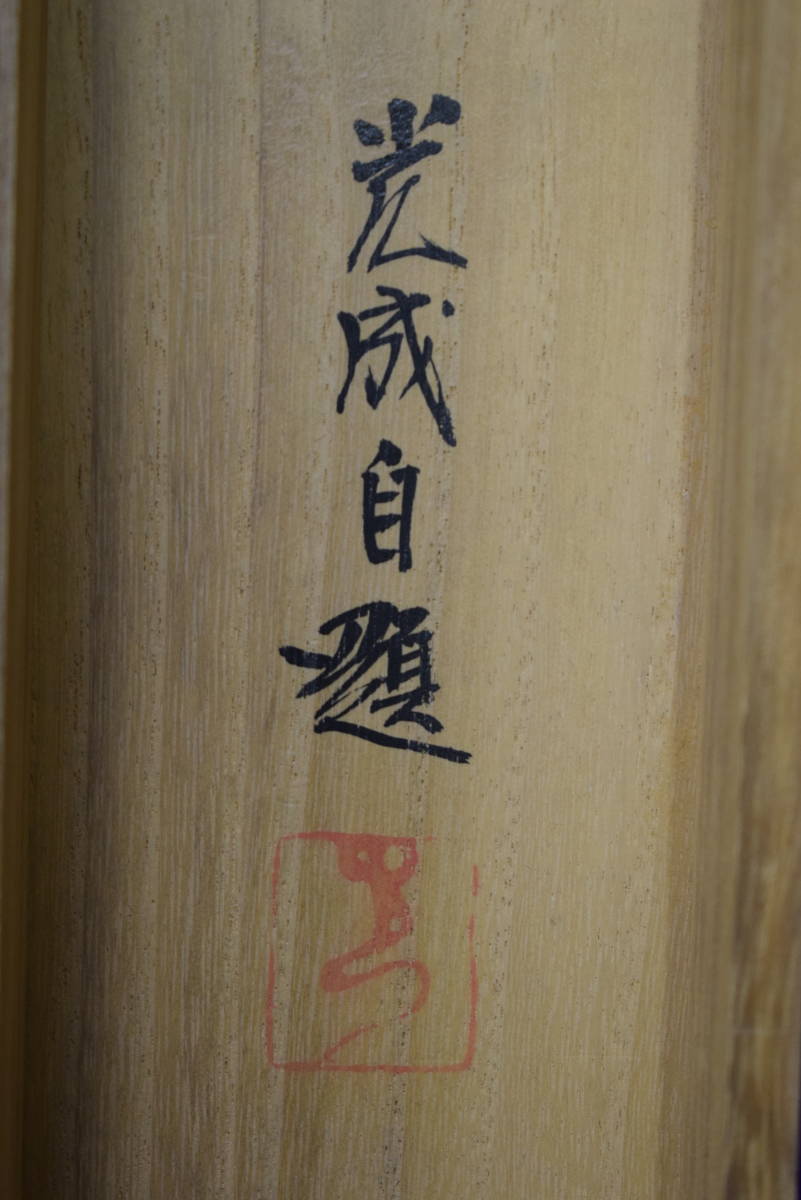 光成自題